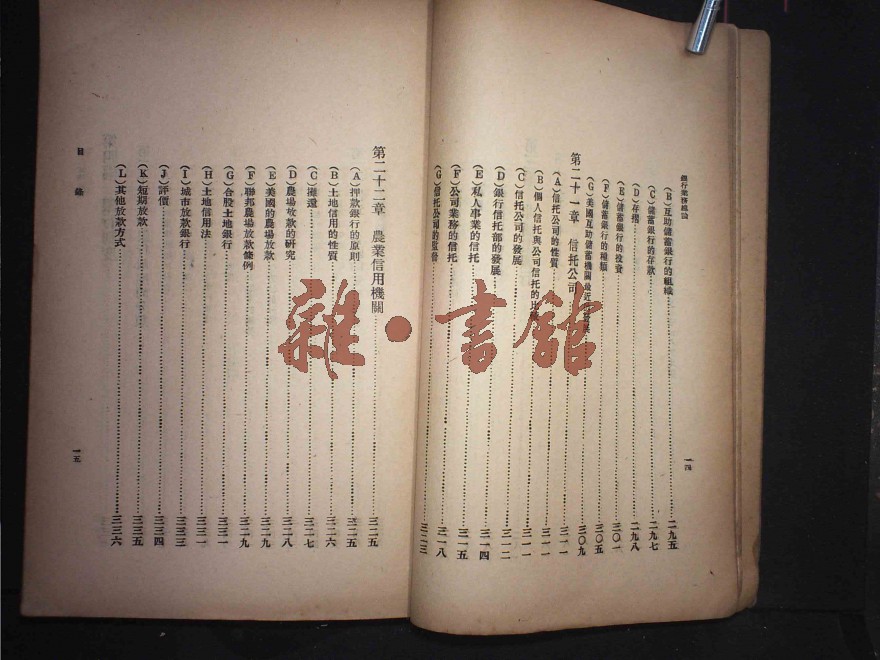 銀行業務總論
(B)互助儲蓄銀行的組織……二九五
(C)儲蓄銀行的存款……二九七
(D)存摺……二九八
(E)儲蓄銀行的投資……三〇一
(F)儲蓄銀行的種類……三〇五
(G)美國互助儲蓄機關最近的發展……三〇九
第二十一章 信托公司……三一一
(A)信托公司的性質……三一一
(B)個人信托與公司信托的比較……三一一
(C)信托公司的發展……三一二
(D)銀行信托部的發展……三一四
(E)私人事業的信托……三一五
(F)公司業務的信托……三一八
(G)信托公司的監督……三二三
一四
第二十二章 農業信用機關……三二五
(A)押款銀行的原則……三二五
(B)土地信用的性質……三二六
(C)攤還……三二七
(D)農場放款的研究……三二八
(E)美國的農場放款……三二九
(F)聯邦農場放款條例……三二九
(G)合股土地銀行……三三一
(H)土地信用法……三三一
(I)城市放款銀行……三三三
(J)評價……三三四
(K)短期放款……三三五
(L)其他放款方式……三三六
目錄
一五
雜·書館